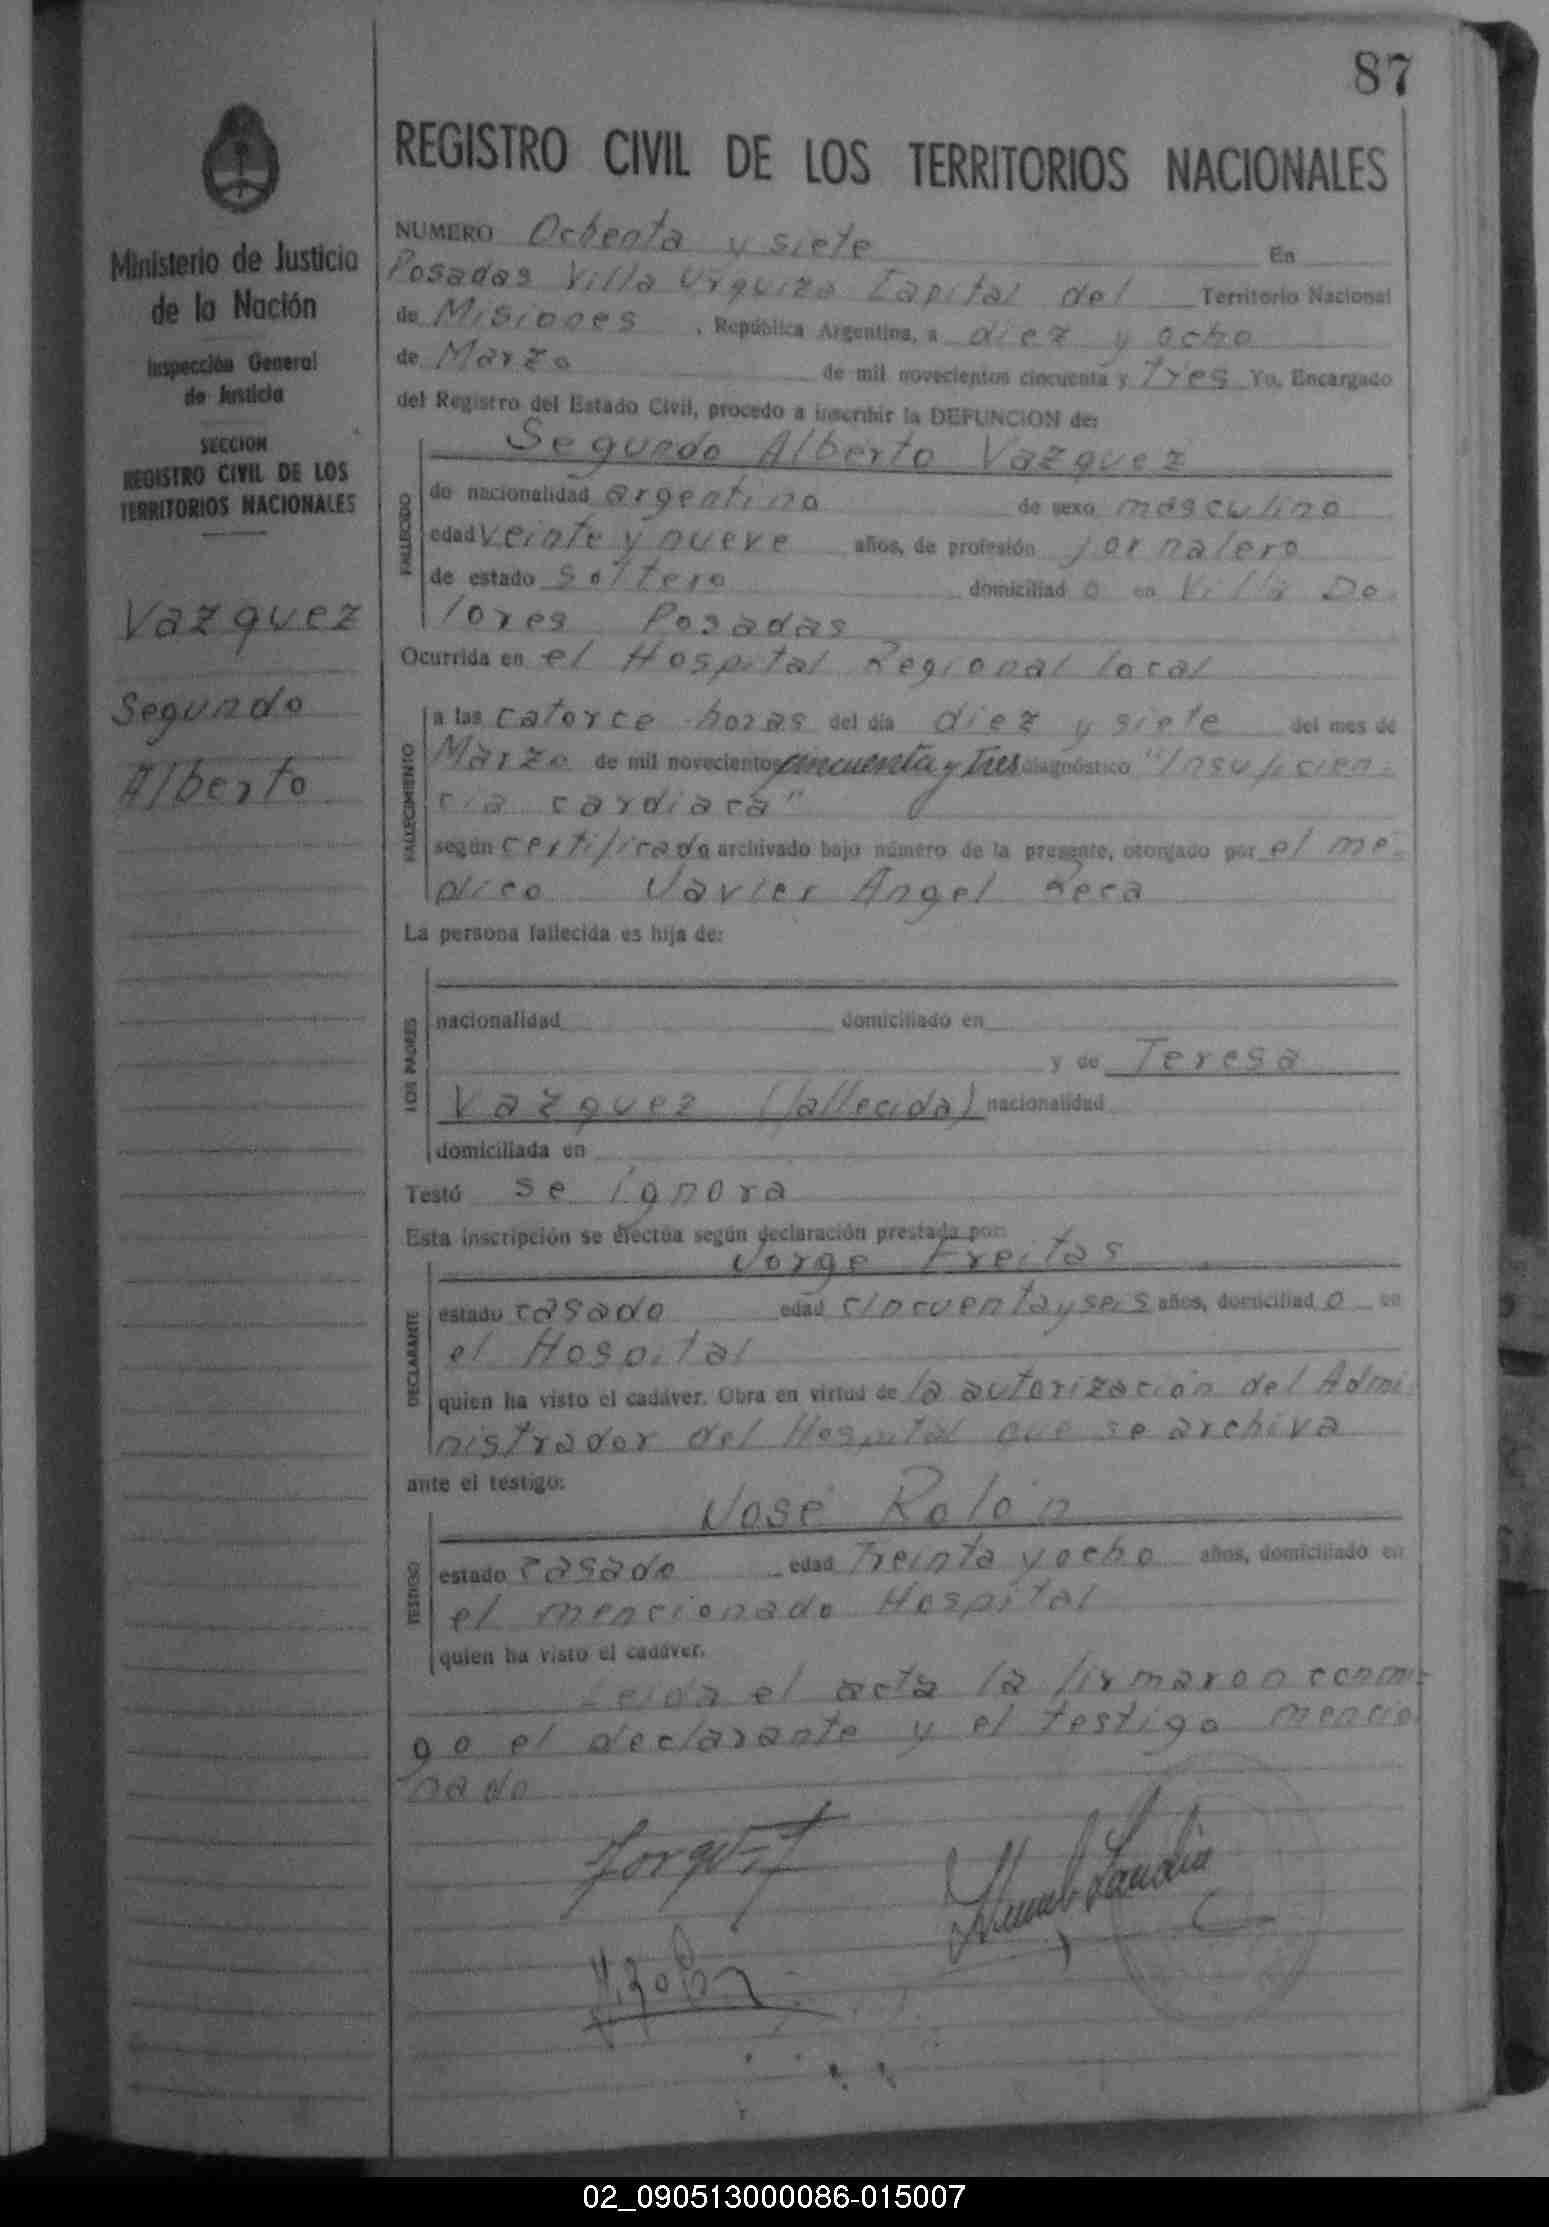 87
REGISTRO CIVIL DE LOS TERRITORIOS NACIONALES
Ministerio de Justicia
de la Nación
Inspección General
de Justicia
SECCION
REGISTRO CIVIL DE LOS
TERRITORIOS NACIONALES
Vazquez
Segundo
Alberto
NUMERO Ochenta y siete En
Posadas Villa Urquiza Capital del Territorio Nacional
de Misiones, República Argentina, a diez y ocho
de Marzo de mil novecientos cincuenta y tres Yo, Encargado
del Registro del Estado Civil, procedo a inscribir la DEFUNCION de:
Segundo Alberto Vazquez
FALLECIDO
de nacionalidad argentina de sexo masculino
edad veinte y nueve años, de profesión jornalero
de estado soltero domiciliad o en Villa Do
lores Posadas
Ocurrida en el Hospital Regional local
FALLECIMIENTO
a las catorce horas del día diez y siete del mes de
Marzo de mil novecientos cincuenta y tres diagnóstico "Insuficien-
cia cardiaca"
según certificado archivado bajo número de la presente, otorgado por el mé-
dico Javier Angel Reca
La persona fallecida es hija de:
LOS PADRES
nacionalidad domiciliado en
y de Teresa
Vazquez (fallecida) nacionalidad
domiciliada en
Testó se ignora
Esta inscripción se efectúa según declaración prestada por:
Jorge Freitas
DECLARANTE
estado casado edad cincuenta y seis años, domiciliad o en
el Hospital
quien ha visto el cadáver. Obra en virtud de la autorización del Admi
nistrador del Hospital que se archiva
ante el testigo:
José Rolón
TESTIGO
estado casado edad treinta y ocho años, domiciliado en
el mencionado Hospital
quien ha visto el cadáver.
Leida el acta la firmaron conmi-
go el declarante y el testigo mencio
nado
02_090513000086-015007